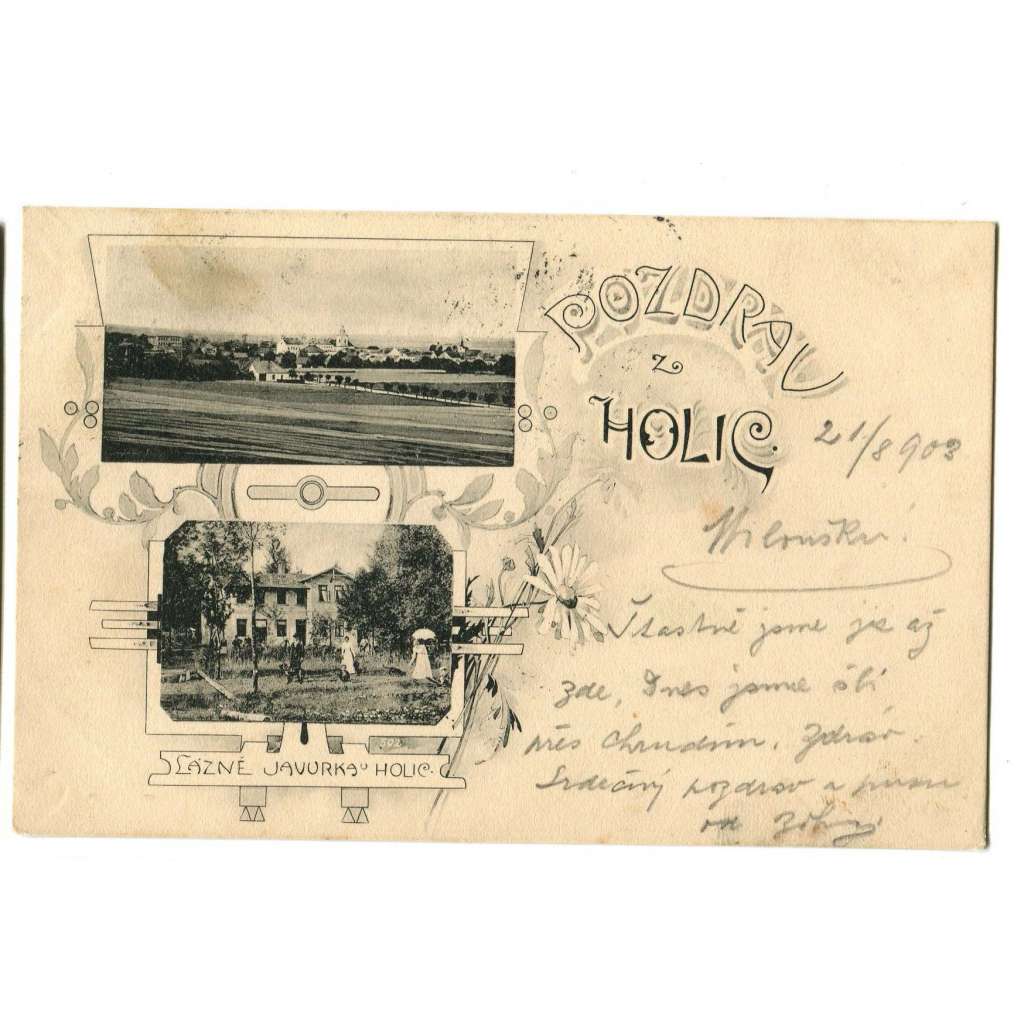 POZDRAV
z
HOLIC.
21/8 903
Šťastně jsme již až
zde, Dnes jsme šli
přes Chrudim. Zdráv.
Srdečný pozdrav a pusu
od
302
LÁZNĚ JAVURKA U HOLIC.